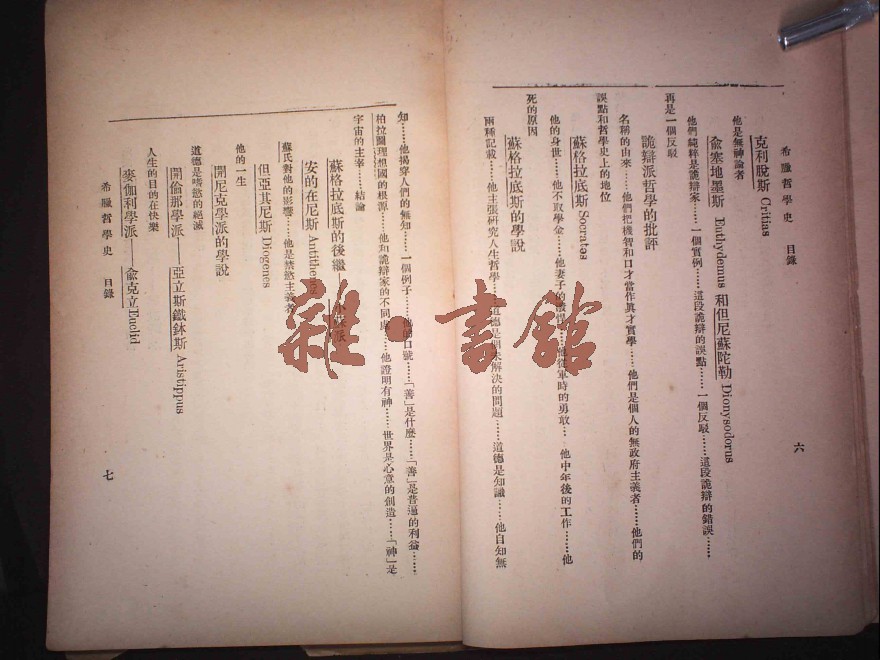 希臘哲學史 目錄
六
克利脫斯 Critias
他是無神論者
兪塞地墨斯 Euthydemus 和但尼蘇陀勒 Dionysodorus
他們純粹是詭辯家……一個實例……這段詭辯的誤點……一個反駁……這段詭辯的錯誤……
再是一個反駁
詭辯派哲學的批評
名稱的由來……他們把機智和口才當作眞才實學……他們是個人的無政府主義者……他們的
誤點和哲學史上的地位
蘇格拉底斯 Socrates
他的身世……他不取學金……他妻子的潑悍……他從軍時的勇敢… 他中年後的工作……他
死的原因
蘇格拉底斯的學說
兩種記載……他主張硏究人生哲學……道德是明未解決的問題……道德是知識……他自知無
知……他揭穿人們的無知……一個例子……他的口號……「善」是什麼……「善」是普遍的利益……
柏拉圖理想國的根源……他和詭辯家的不同處……他證明有神……世界是心意的創造……「神」是
宇宙的主宰……結論
蘇格拉底斯的後繼——小蘇派
安的在尼斯 Antithenes
蘇氏對他的影響……他是禁慾主義者
但亞其尼斯 Diogenes
他的一生
開尼克學派的學說
道德是嗜慾的絕滅
開倫那學派——亞立斯鐵鉢斯 Aristippus
人生的目的在快樂
麥伽利學派——兪克立 Euclid
希臘哲學史 目錄
七
雜·書館